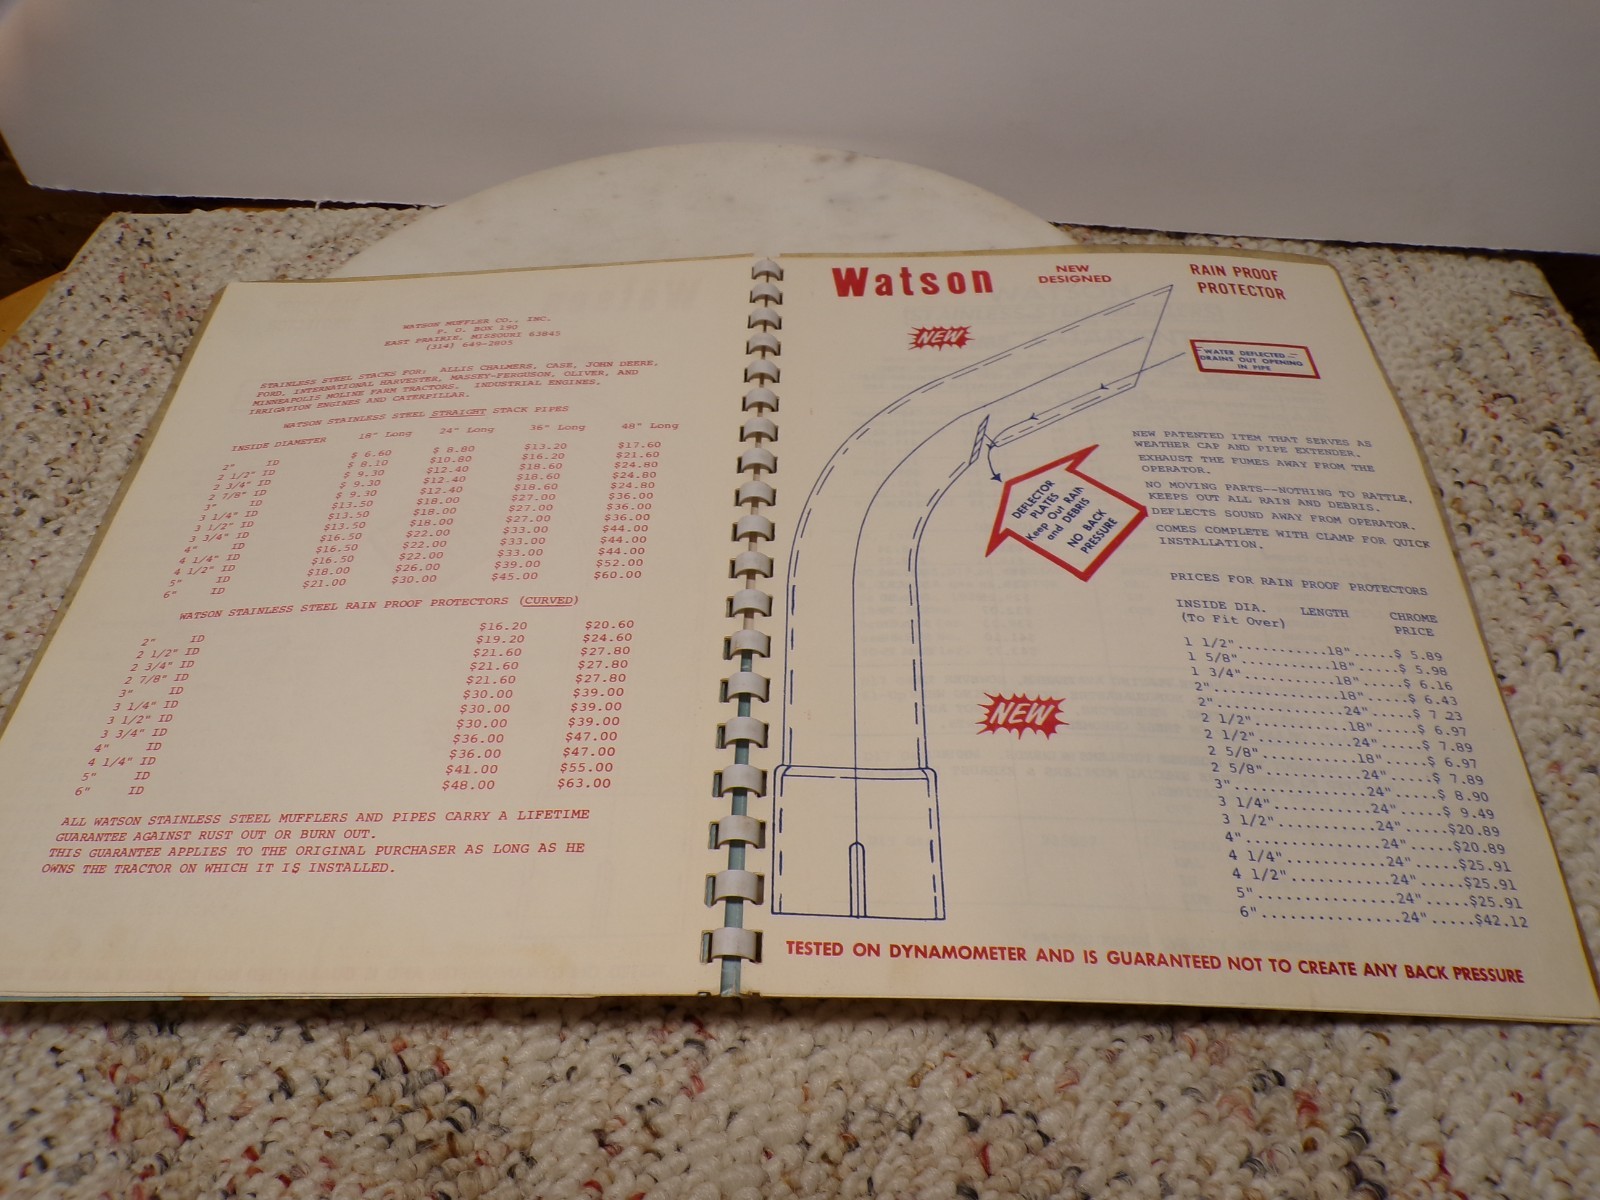 WATSON MUFFLER CO., INC.
P. O. BOX 190
EAST PRAIRIE, MISSOURI 63845
(314) 649-2805
STAINLESS STEEL STACKS FOR: ALLIS CHALMERS, CASE, JOHN DEERE,
FORD, INTERNATIONAL HARVESTER, MASSEY-FERGUSON, OLIVER, AND
MINNEAPOLIS MOLINE FARM TRACTORS. INDUSTRIAL ENGINES,
IRRIGATION ENGINES AND CATERPILLAR.
WATSON STAINLESS STEEL STRAIGHT STACK PIPES
INSIDE DIAMETER 18" Long 24" Long 36" Long 48" Long
2" ID $ 6.60 $ 8.80 $13.20 $17.60
2 1/2" ID $ 8.10 $10.80 $16.20 $21.60
2 3/4" ID $ 9.30 $12.40 $18.60 $24.80
2 7/8" ID $ 9.30 $12.40 $18.60 $24.80
3" ID $ 9.30 $12.40 $18.60 $24.80
3 1/4" ID $13.50 $18.00 $27.00 $36.00
3 1/2" ID $13.50 $18.00 $27.00 $36.00
3 3/4" ID $13.50 $18.00 $27.00 $36.00
4" ID $16.50 $22.00 $33.00 $44.00
4 1/4" ID $16.50 $22.00 $33.00 $44.00
4 1/2" ID $16.50 $22.00 $33.00 $44.00
5" ID $18.00 $26.00 $39.00 $52.00
6" ID $21.00 $30.00 $45.00 $60.00
WATSON STAINLESS STEEL RAIN PROOF PROTECTORS (CURVED)
2" ID $16.20 $20.60
2 1/2" ID $19.20 $24.60
2 3/4" ID $21.60 $27.80
2 7/8" ID $21.60 $27.80
3" ID $21.60 $27.80
3 1/4" ID $30.00 $39.00
3 1/2" ID $30.00 $39.00
3 3/4" ID $30.00 $39.00
4" ID $36.00 $47.00
4 1/4" ID $36.00 $47.00
5" ID $41.00 $55.00
6" ID $48.00 $63.00
ALL WATSON STAINLESS STEEL MUFFLERS AND PIPES CARRY A LIFETIME
GUARANTEE AGAINST RUST OUT OR BURN OUT.
THIS GUARANTEE APPLIES TO THE ORIGINAL PURCHASER AS LONG AS HE
OWNS THE TRACTOR ON WHICH IT IS INSTALLED.
Watson
NEW
DESIGNED
RAIN PROOF
PROTECTOR
NEW
WATER DEFLECTED
DRAINS OUT OPENING
IN PIPE
DEFLECTOR
PLATES
Keep Out RAIN
and DEBRIS
NO BACK
PRESSURE
NEW PATENTED ITEM THAT SERVES AS
WEATHER CAP AND PIPE EXTENDER.
EXHAUST THE FUMES AWAY FROM THE
OPERATOR.
NO MOVING PARTS--NOTHING TO RATTLE,
KEEPS OUT ALL RAIN AND DEBRIS.
DEFLECTS SOUND AWAY FROM OPERATOR.
COMES COMPLETE WITH CLAMP FOR QUICK
INSTALLATION.
NEW
PRICES FOR RAIN PROOF PROTECTORS
INSIDE DIA. LENGTH CHROME
(To Fit Over) PRICE
1 1/2"...........18".....$ 5.89
1 5/8"...........18".....$ 5.98
1 3/4"...........18".....$ 6.16
2"...............18".....$ 6.43
2"...............24".....$ 7.23
2 1/2"...........18".....$ 6.97
2 1/2"...........24".....$ 7.89
2 5/8"...........18".....$ 6.97
2 5/8"...........24".....$ 7.89
3"...............24".....$ 8.90
3 1/4"...........24".....$ 9.49
3 1/2"...........24".....$20.89
4"...............24".....$20.89
4 1/4"...........24".....$25.91
4 1/2"...........24".....$25.91
5"...............24".....$25.91
6"...............24".....$42.12
TESTED ON DYNAMOMETER AND IS GUARANTEED NOT TO CREATE ANY BACK PRESSURE